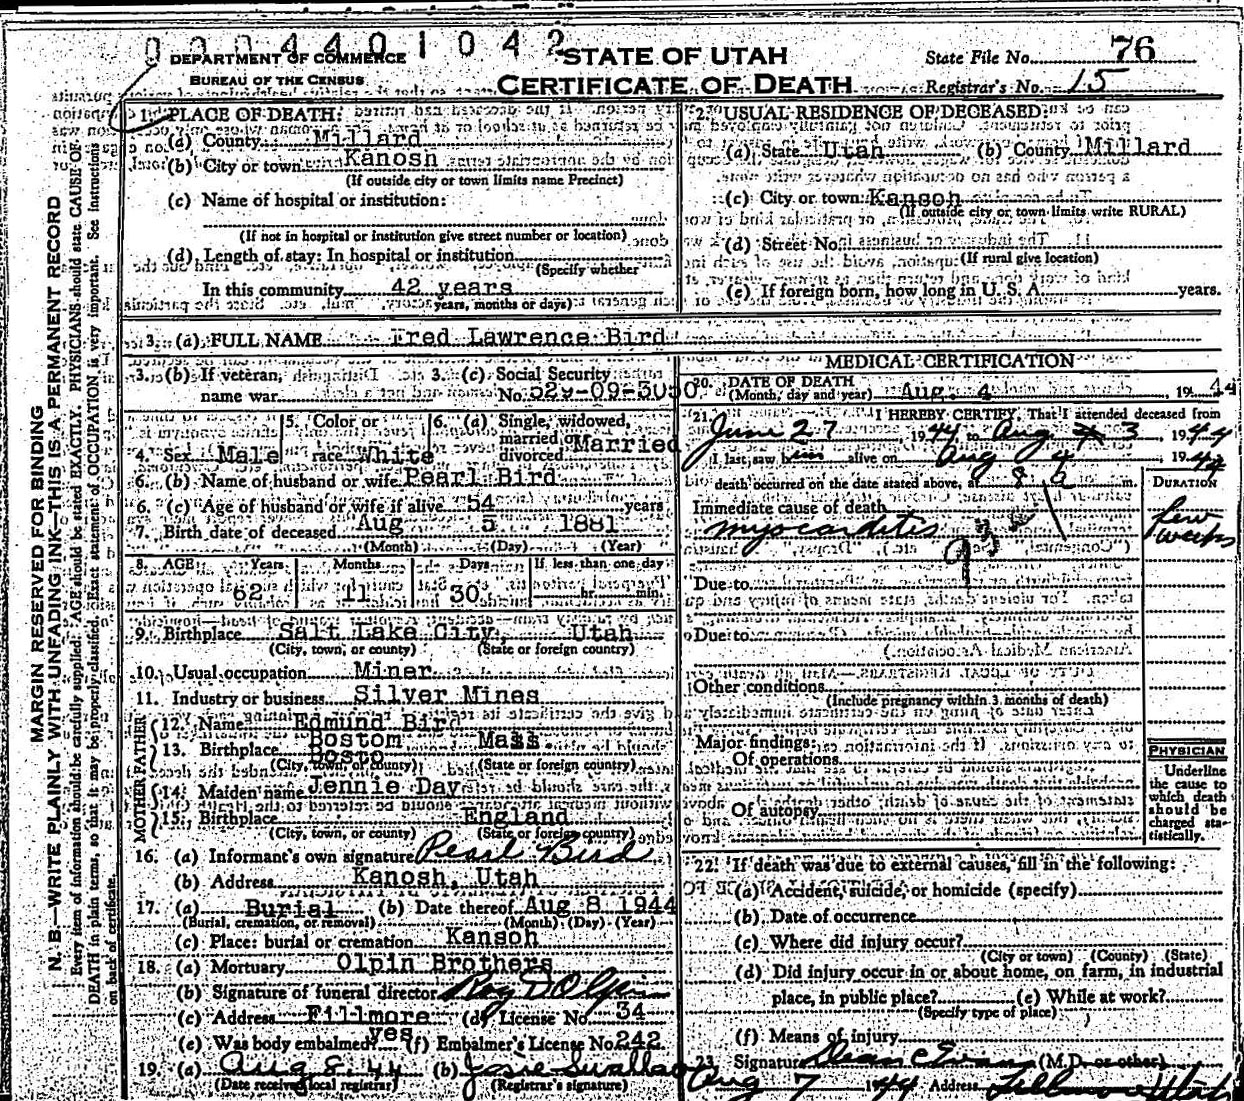 0004401042
DEPARTMENT OF COMMERCE
BUREAU OF THE CENSUS
STATE OF UTAH
CERTIFICATE OF DEATH
State File No. 76
Registrar's No. 15
MARGIN RESERVED FOR BINDING
N. B.—WRITE PLAINLY WITH UNFADING INK—THIS IS A PERMANENT RECORD
Every item of information should be carefully supplied. AGE should be stated EXACTLY. PHYSICIANS should state CAUSE OF
DEATH in plain terms, so that it may be properly classified. Exact statement of OCCUPATION is very important. See instructions
on back of certificate.
1. PLACE OF DEATH:
(a) County Millard
(b) City or town Kanosh
(If outside city or town limits name Precinct)
(c) Name of hospital or institution:
(If not in hospital or institution give street number or location)
(d) Length of stay: In hospital or institution
(Specify whether
In this community 42 years
years, months or days)
2. USUAL RESIDENCE OF DECEASED:
(a) State Utah (b) County Millard
(c) City or town Kansoh
(If outside city or town limits write RURAL)
(d) Street No.
(If rural give location)
(e) If foreign born, how long in U. S. A. years.
3. (a) FULL NAME Fred Lawrence Bird
3. (b) If veteran,
name war
3. (c) Social Security
No. 529-09-3050
4. Sex Male
5. Color or
race White
6. (a) Single, widowed,
married or
divorced Married
6. (b) Name of husband or wife Pearl Bird
6. (c) Age of husband or wife if alive 54 years
7. Birth date of deceased Aug 5 1881
(Month) (Day) (Year)
8. AGE Years Months Days If less than one day
62 11 30 hr. min.
9. Birthplace Salt Lake City, Utah
(City, town, or county) (State or foreign country)
10. Usual occupation Miner
11. Industry or business Silver Mines
FATHER
12. Name Edmund Bird
13. Birthplace Bostom Mass.
(City, town, or county) (State or foreign country)
MOTHER
14. Maiden name Jennie Day
15. Birthplace England
(City, town, or county) (State or foreign country)
16. (a) Informant's own signature Pearl Bird
(b) Address Kanosh, Utah
17. (a) Burial (b) Date thereof Aug 8 1944
(Burial, cremation, or removal) (Month) (Day) (Year)
(c) Place: burial or cremation Kansoh
18. (a) Mortuary Olpin Brothers
(b) Signature of funeral director Roy D Olpin
(c) Address Fillmore (d) License No. 34
(e) Was body embalmed? yes (f) Embalmer's License No. 242
19. (a) Aug 8. 44 (b) Josie Swallow
(Date received local registrar) (Registrar's signature)
MEDICAL CERTIFICATION
20. DATE OF DEATH
(Month, day and year) Aug. 4, 1944
21. I HEREBY CERTIFY, That I attended deceased from
June 27 1944, to Aug 3, 1944
I last saw him alive on Aug 4, 1944
death occurred on the date stated above, at 8 m.
DURATION
Immediate cause of death
myocarditis few
weeks
Due to
Due to
Other conditions
(Include pregnancy within 3 months of death)
Major findings:
Of operations
Of autopsy
PHYSICIAN
Underline
the cause to
which death
should be
charged sta-
tistically.
22. If death was due to external causes, fill in the following:
(a) Accident, suicide, or homicide (specify)
(b) Date of occurrence
(c) Where did injury occur?
(City or town) (County) (State)
(d) Did injury occur in or about home, on farm, in industrial
place, in public place? (e) While at work?
(Specify type of place)
(f) Means of injury
23. Signature Dean C Evans (M.D. or other)
Aug 7 1944 Address Fillmore Utah